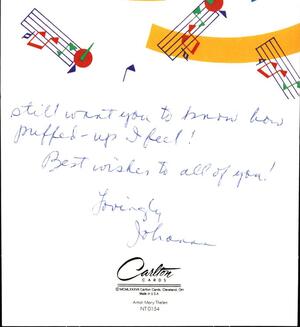 still want you to know how
puffed-up I feel!
Best wishes to all of you!
Lovingly
Johanna
Carlton
CARDS
©MCMLXXXVII Carlton Cards, Cleveland, OH
Made in U.S.A.
Artist: Mary Thelen
NT0154